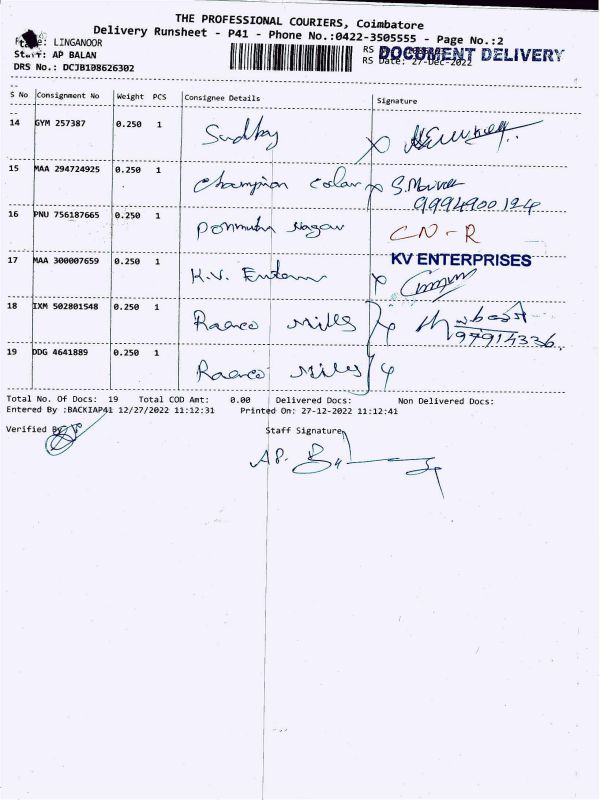 THE PROFESSIONAL COURIERS, Coimbatore
Delivery Runsheet - P41 - Phone No.:0422-3505555 - Page No.:2
LINGANOOR
Staff: AP BALAN
DRS No.: DCJB108626302
RS
DOCUMENT DELIVERY
RS Date: 27-Dec-2022
S No Consignment No Weight PCS Consignee Details Signature
14 GYM 257387 0.250 1
15 MAA 294724925 0.250 1 Champion Colar x S.
9994900124
16 PNU 756187665 0.250 1 Ponmuthu Nagar CN-R
17 MAA 300007659 0.250 1 K.V. x KV ENTERPRISES
18 IXM 502801548 0.250 1 Raenco Mills
19 DDG 4641889 0.250 1 Raenco Mills
Total No. Of Docs: 19 Total COD Amt: 0.00 Delivered Docs: Non Delivered Docs:
Entered By :BACKIAP41 12/27/2022 11:12:31 Printed On: 27-12-2022 11:12:41
Verified By Staff Signature
AP.